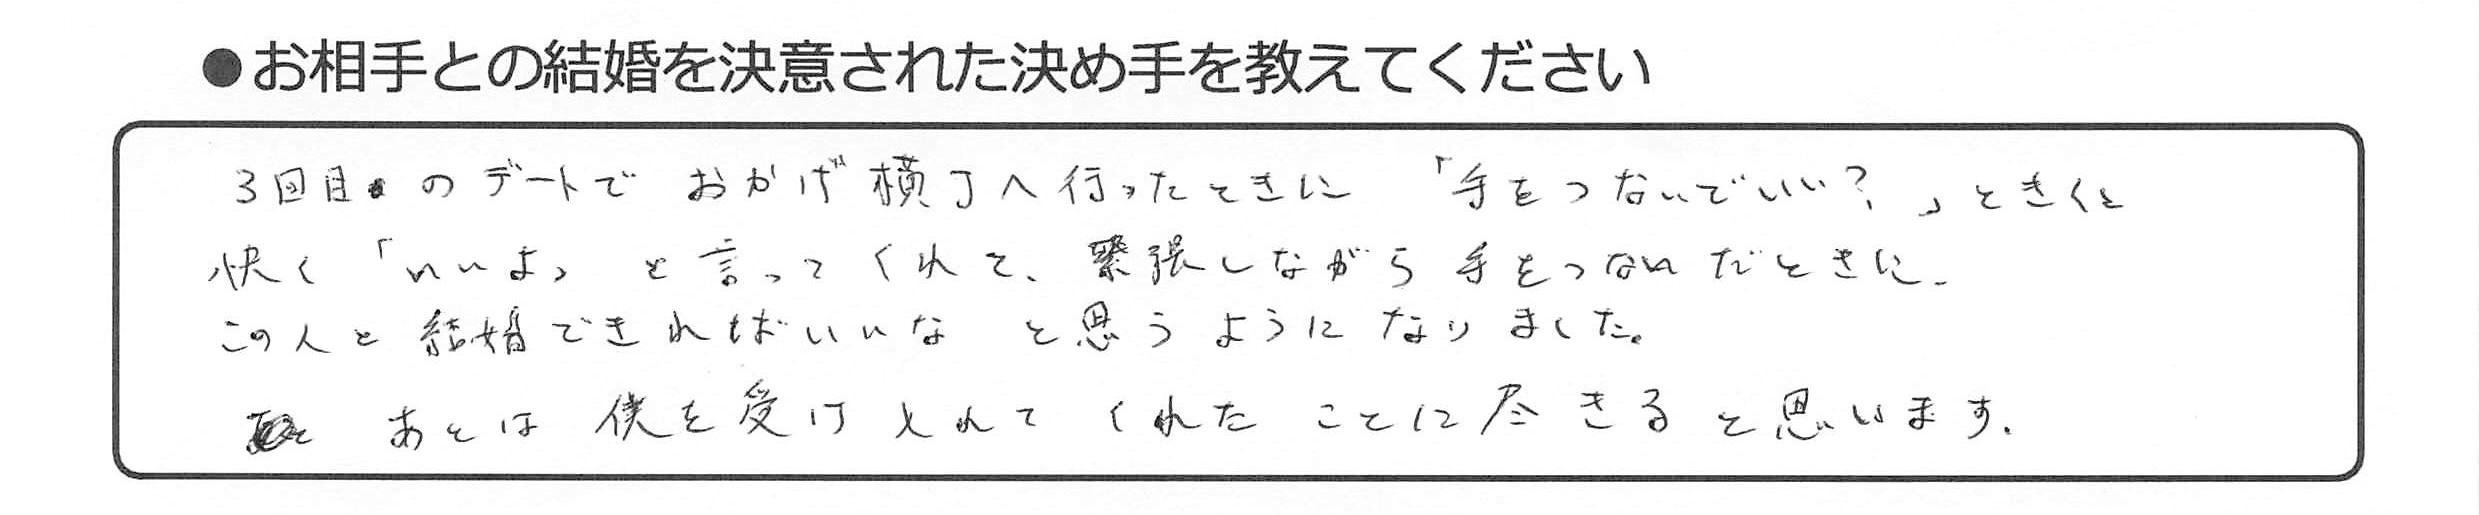 ●お相手との結婚を決意された決め手を教えてください
3回目のデートでおかげ横丁へ行ったときに「手をつないでいい?」ときくと
快く「いいよ」と言ってくれて、緊張しながら手をつないだときに、
この人と結婚できればいいなと思うようになりました。
あとは僕を受け入れてくれたことに尽きると思います。